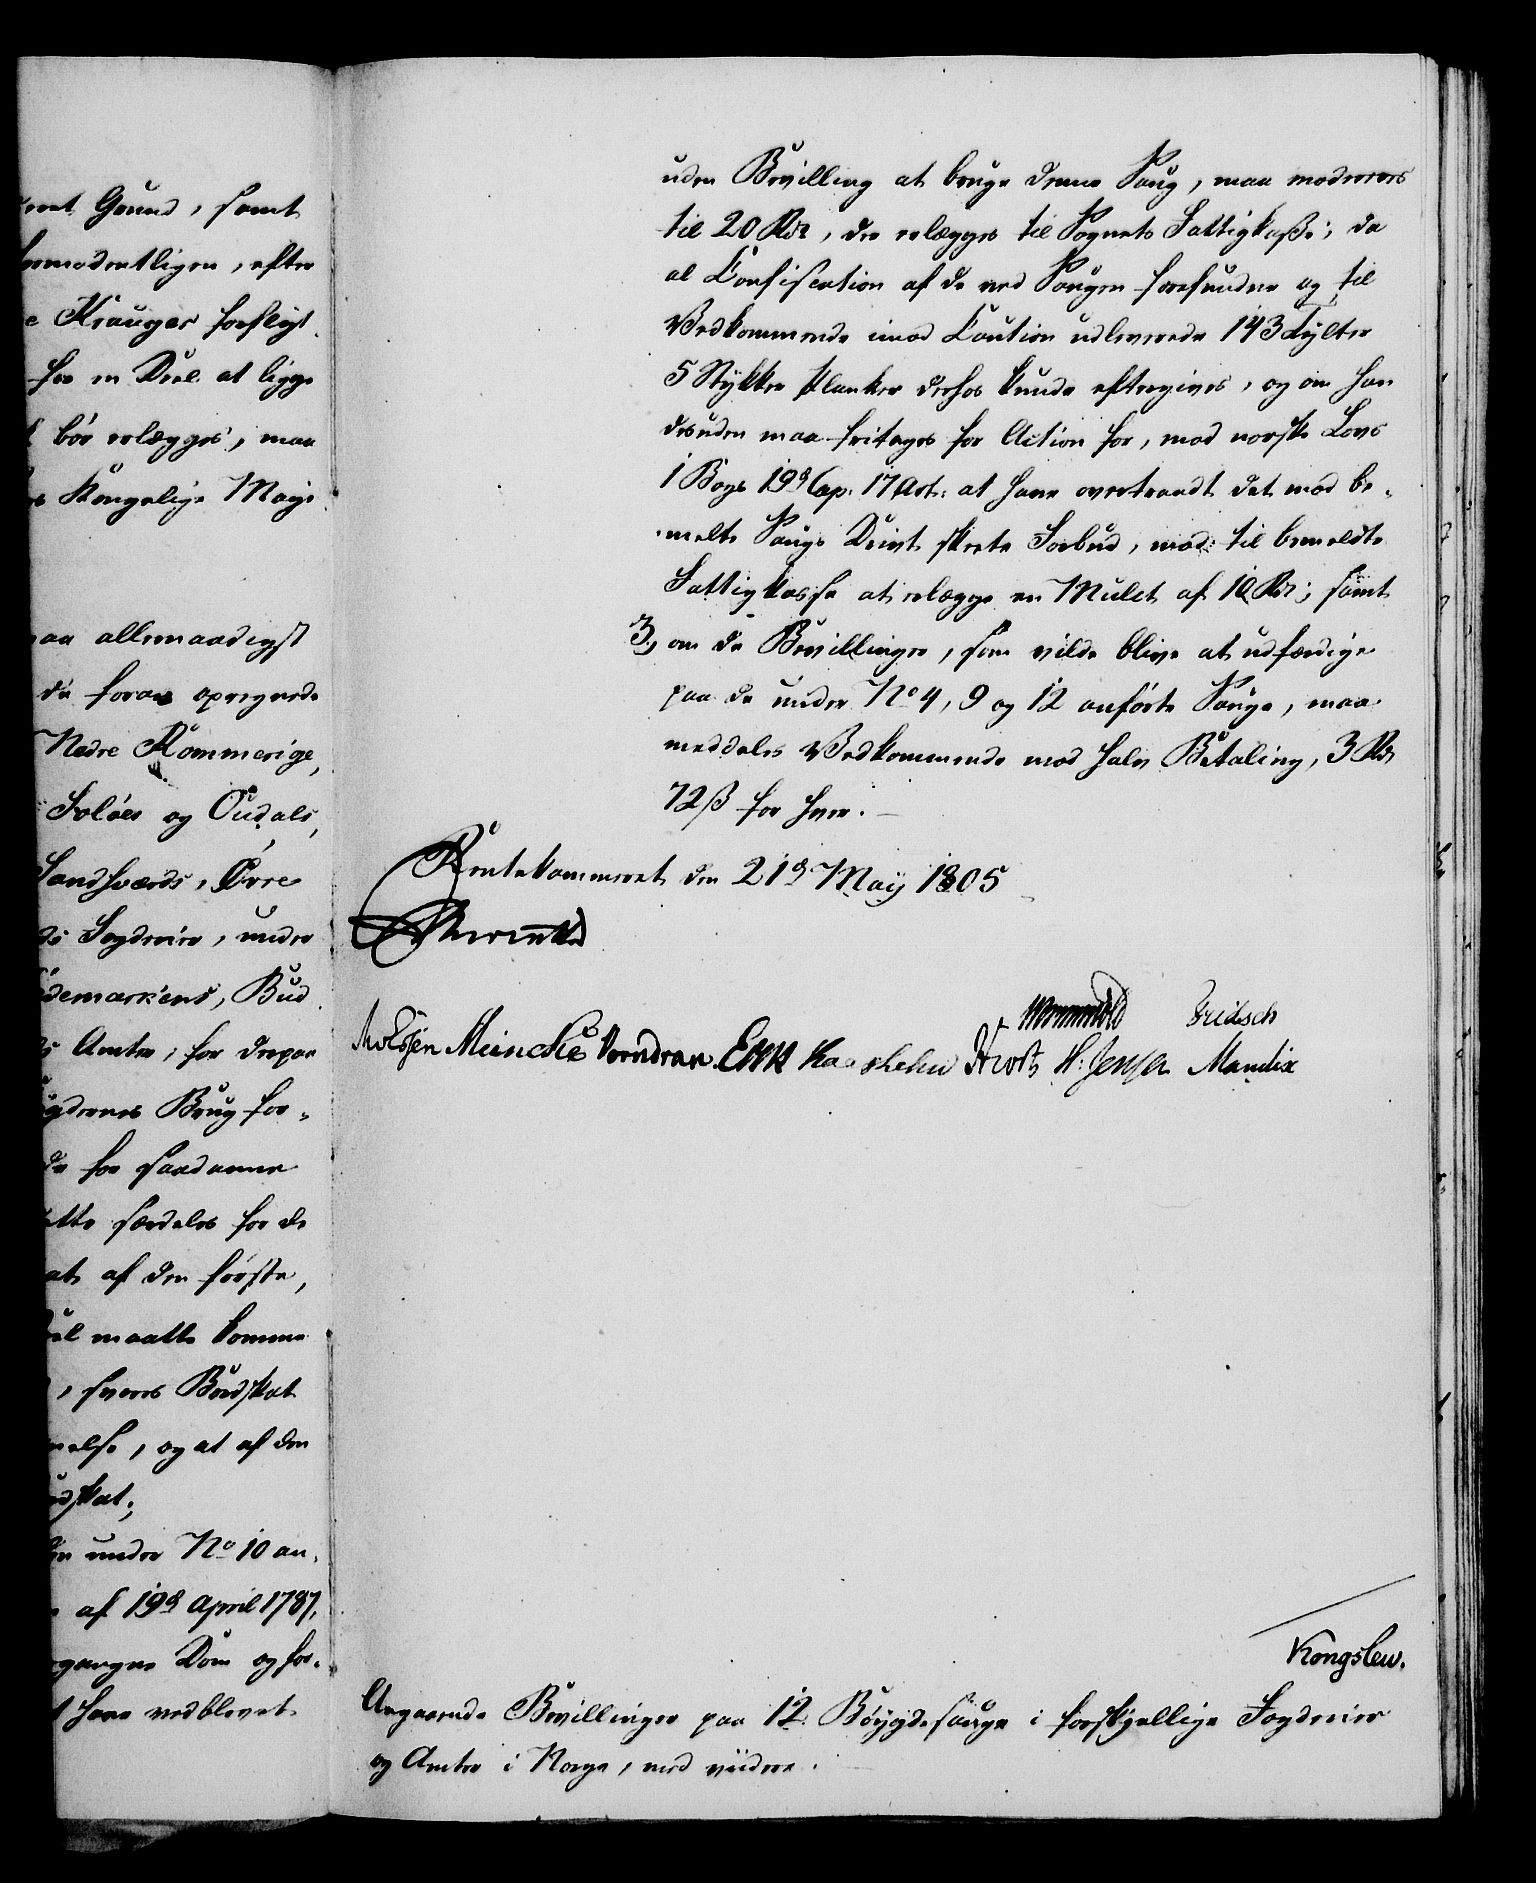 eret Grund, samt
formodentligen, efter
e Krauger forfligt
for en Deel at ligge
bör erlægges, maa
Kongelige Maje
maa allernaadigst
de foran opregnede
Nedre Rommerige,
Soløer og Oudals,
Sandsværds, Øvre
Fogderier, under
demarkens, Bud
Amter, for depaa
Bygdernes Brug for-
de for saadanne
ette særdeles for de
at af den første,
maatte komme
, svares Bordskat
else, og at af den
dskat;
under No 10 an-
af 19de April 1787,
gangne Dom og for-
have vedblevet
uden Bevilling at bruge denne Saug, maa modereres
til 20 Rdr, der erlægges til Sognets Fattigkasse; da
al Confiscation af de ved Saugen forefundne og til
Vedkommende imod Caution udleverede 143 Tylter
5 Stykker Planker derhos kunde eftergives, og om han
desuden maa fritages for Action for, mod norske Lovs
1 Bogs 19de Cap. 17 Art: at have overtraadt det mod be-
melte Saugs Drivt skeete Forbud, mod: til bemeldte
Fattigkasse at erlægge en Mulct af 10 Rdr; samt
3, om de Bevillinger, som vilde blive at udfærdige
paa de under No 4, 9 og 12 anførte Sauge, maa
meddeles Vedkommende mod halv Betaling, 3 Rdr
72 ß for hver.
Rentekammeret den 21de Maij 1805
Wormskiold Fritsch
Meincke Vorndran. Hvorft H: Jensen Mandix
Kongslew.
Angaaende Bevillinger paa 12 Böygdesauge i forskjellige Fogderier
og Amter i Norge, med videre.